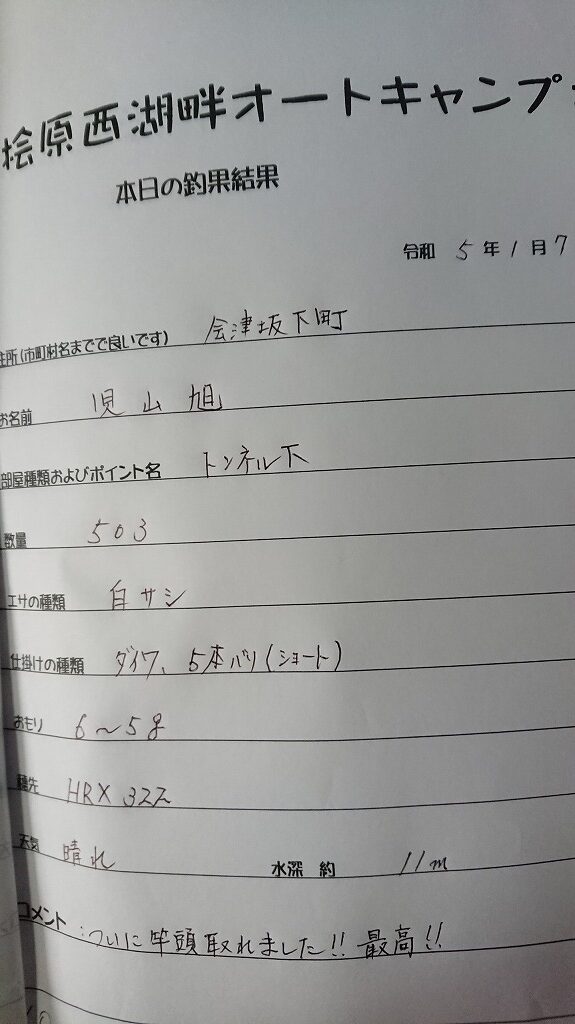 桧原西湖畔オートキャンプ
本日の釣果結果
令和 5 年 1 月 7
住所(市町村名までで良いです) 会津坂下町
お名前 児山 旭
部屋種類およびポイント名 トンネル下
数量 503
エサの種類 白サシ
仕掛けの種類 ダイワ、5本バリ(ショート)
おもり 6〜5g
穂先 HRX
天気 晴れ 水深 約 11m
コメント :ついに竿頭取れました!! 最高!!